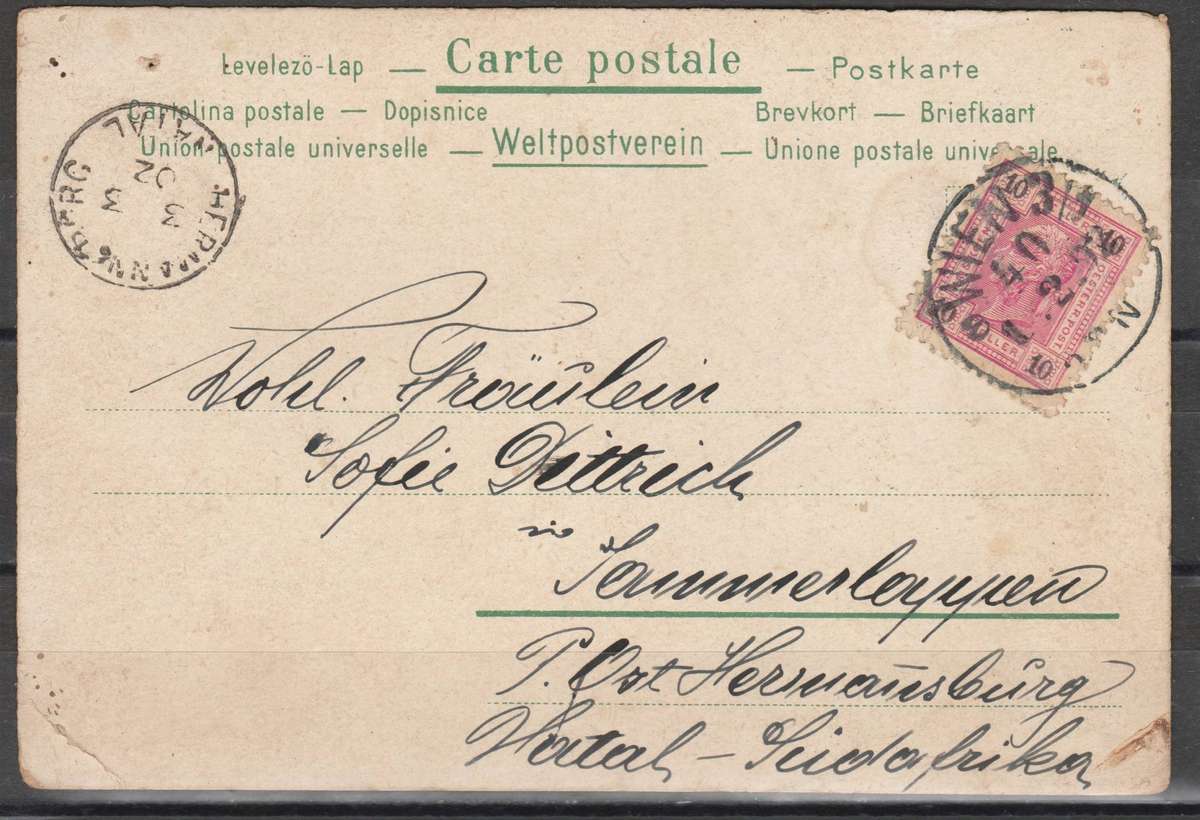 Levelező-Lap — Carte postale — Postkarte
Cartolina postale — Dopisnice Brevkort — Briefkaart
Union postale universelle — Weltpostverein — Unione postale universale
HERMANNSBERG NATAL
3
3
02
WIEN
10 10 10
HELLER
OESTERR. POST
Wohl. Fräulein
Sofie Dittrich
in
Sammerlappen
P. Ost Hermansburg
Natal – Südafrika